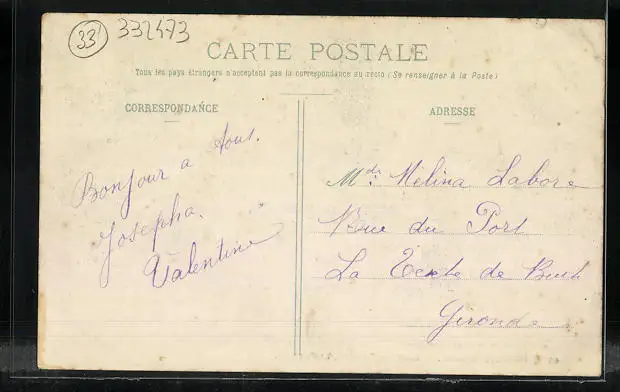 33 332473
CARTE POSTALE
Tous les pays étrangers n'acceptent pas la correspondance au recto (Se renseigner à la Poste)
CORRESPONDANCE
ADRESSE
Bonjour a tous.
Josepha.
Valentine
Mde. Mélina Labore
Rue du Port
La Teste de Buch
Gironde